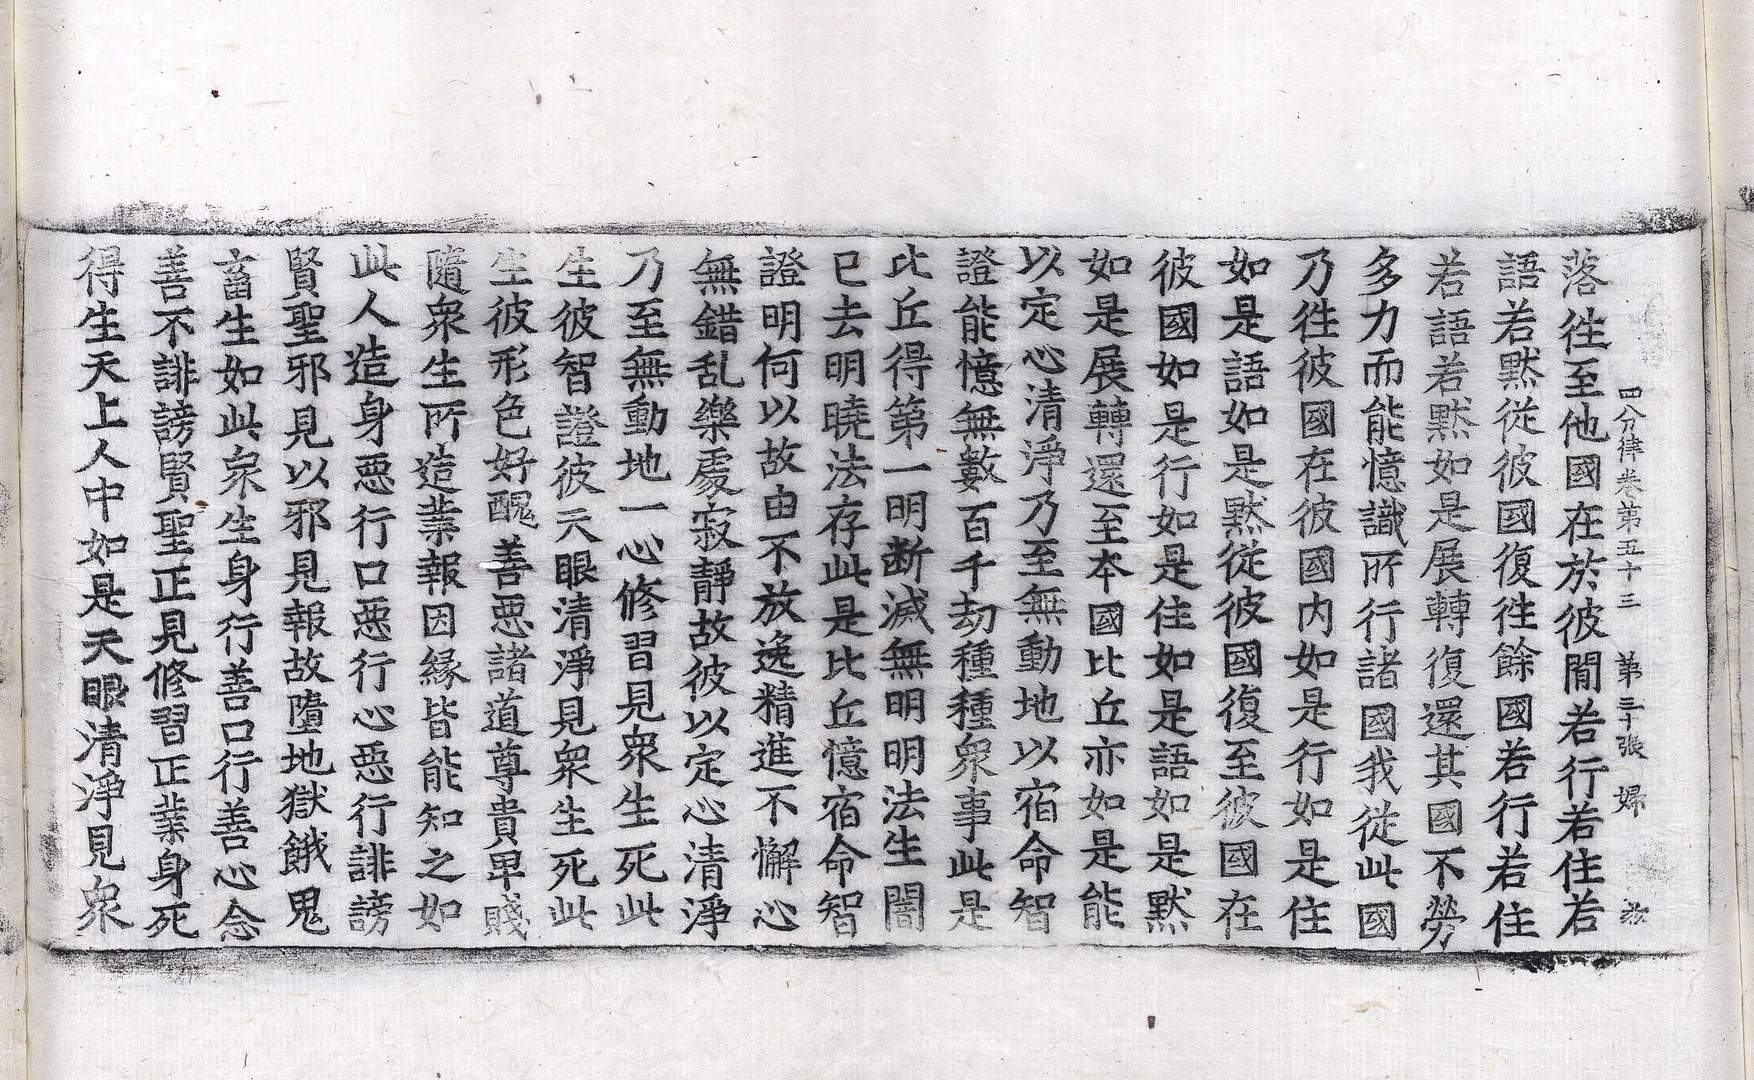 四分律卷第五十三　第三十張　婦
落徃至他國在於彼間若行若住若
語若黙從彼國復徃餘國若行若住
若語若黙如是展轉復還其國不勞
多力而能憶識所行諸國我從此國
乃徃彼國在彼國内如是行如是住
如是語如是黙從彼國復至彼國在
彼國如是行如是住如是語如是黙
如是展轉還至本國比丘亦如是能
以定心清淨乃至無動地以宿命智
證能憶無數百千劫種種衆事此是
比丘得第一明断滅無明明法生闇
已去明曉法存此是比丘憶宿命智
證明何以故由不放逸精進不懈心
無錯乱樂處寂靜故彼以定心清淨
乃至無動地一心修習見衆生死此
生彼智證彼天眼清淨見衆生死此
生彼形色好醜善惡諸道尊貴卑賤
隨衆生所造業報因緣皆能知之如
此人造身惡行口惡行心惡行誹謗
賢聖邪見以邪見報故墮地獄餓鬼
畜生如此衆生身行善口行善心念
善不誹謗賢聖正見修習正業身死
得生天上人中如是天眼清淨見衆